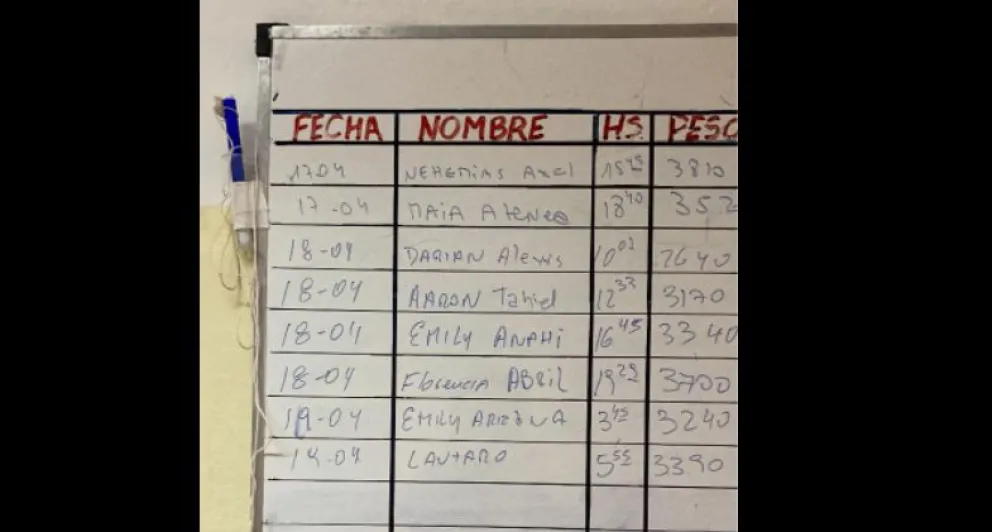 FECHA NOMBRE HS. PESO
17.04 NEHEMIAS Axel 15 45 3810
17-04 MAIA Atenea 18 40 352
18-04 DARIAN Alexis 10 02 2640
18-04 AARON Tahiel 12 33 3170
18-04 EMILY ANAHI 16 45 3340
18-04 Florencia ABRIL 19 29 3700
19-04 EMILY ARIZONA 3 45 3240
19-04 LAUTARO 5 55 3390